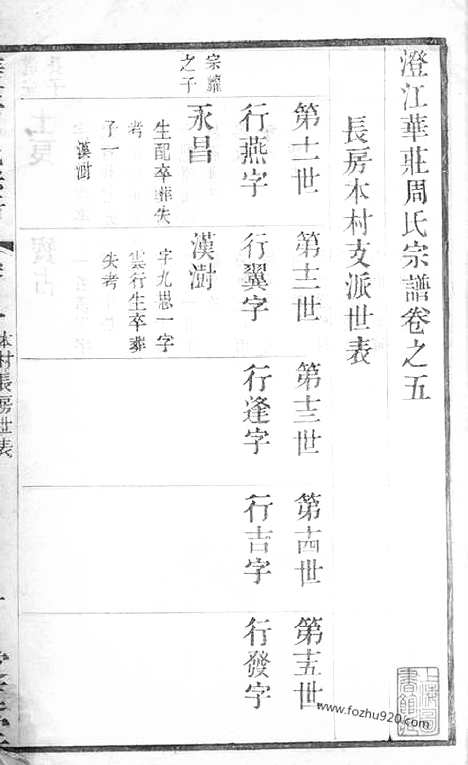 澄江華莊周氏宗譜卷之五
長房本村支派世表
第十一世
第十二世
第十三世
第十四世
第十五世
行燕字
行翼字
行逢字
行吉字
行發字
之子
永昌
生配卒葬失
考
子一
漢澍
漢澍
字九思一字
雲行生卒葬
失考
本村長房世表
上海圖書館藏
www.fozhu920.com